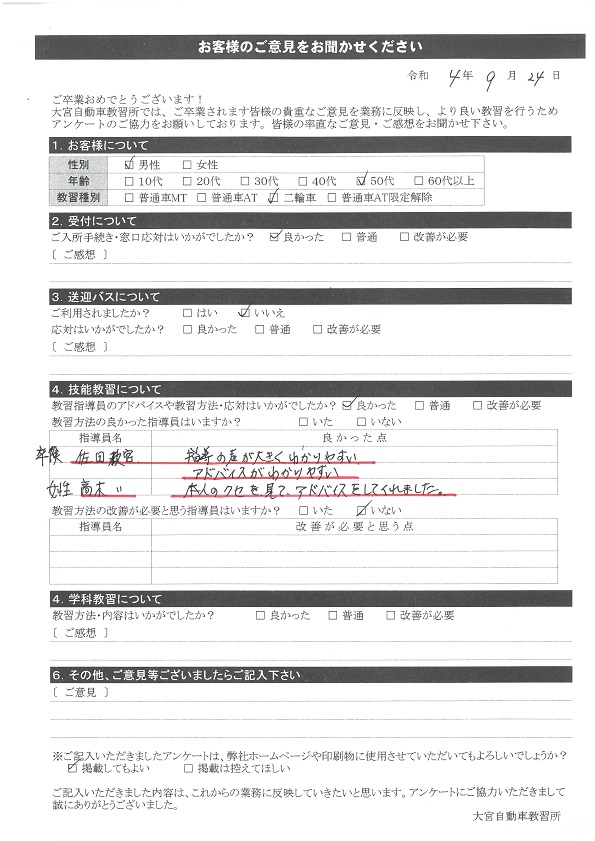 お客様のご意見をお聞かせください
令和 4年 9月 24日
ご卒業おめでとうございます！
大宮自動車教習所では、ご卒業されます皆様の貴重なご意見を業務に反映し、より良い教習を行うため
アンケートのご協力をお願いしております。皆様の率直なご意見・ご感想をお聞かせ下さい。
1. お客様について
性別 ☑男性 □女性
年齢 □10代 □20代 □30代 □40代 ☑50代 □60代以上
教習種別 □普通車MT □普通車AT ☑二輪車 □普通車AT限定解除
2. 受付について
ご入所手続き・窓口応対はいかがでしたか？ ☑良かった □普通 □改善が必要
〔 ご感想 〕
3. 送迎バスについて
ご利用されましたか？ □はい ☑いいえ
応対はいかがでしたか？ □良かった □普通 □改善が必要
〔 ご感想 〕
4. 技能教習について
教習指導員のアドバイスや教習方法・応対はいかがでしたか？ ☑良かった □普通 □改善が必要
教習方法の良かった指導員はいますか？ □いた □いない
指導員名 良かった点
卒検 佐田教官 指導の声が大きくわかりやすい
アドバイスがわかりやすい
女性 高木 〃 本人のクセを見て、アドバイスをしてくれました。
教習方法の改善が必要と思う指導員はいますか？ □いた ☑いない
指導員名 改善が必要と思う点
4. 学科教習について
教習方法・内容はいかがでしたか？ □良かった □普通 □改善が必要
〔 ご感想 〕
6. その他、ご意見等ございましたらご記入下さい
〔 ご意見 〕
※ご記入いただきましたアンケートは、弊社ホームページや印刷物に使用させていただいてもよろしいでしょうか？
☑掲載してもよい □掲載は控えてほしい
ご記入いただきました内容は、これからの業務に反映していきたいと思います。アンケートにご協力いただきまして
誠にありがとうございました。
大宮自動車教習所